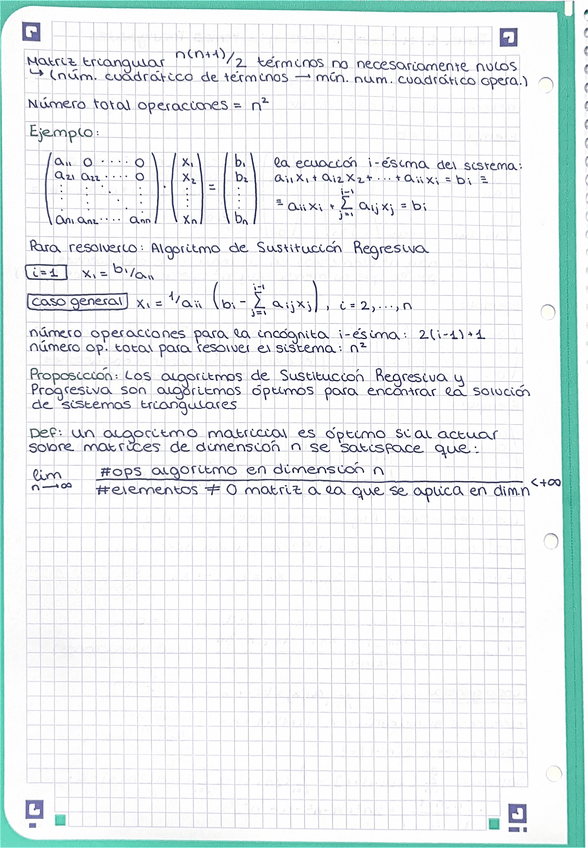 Matriz triangular n(n+1)/2 términos no necesariamente nulos
↳ (núm. cuadrático de términos → mín. num. cuadrático opera.)
Número total operaciones = n²
Ejemplo:
( a₁₁ 0 ···· 0 ) ( x₁ ) ( b₁ ) la ecuación i-ésima del sistema:
( a₂₁ a₂₂ ···· 0 ) · ( x₂ ) = ( b₂ ) aᵢ₁x₁ + aᵢ₂x₂ + ··· + aᵢᵢxᵢ = bᵢ ≡
( ⋮ ⋮ ⋱ ⋮ ) ( ⋮ ) ( ⋮ ) ≡ aᵢᵢxᵢ + Σ_{j=1}^{i-1} aᵢⱼxⱼ = bᵢ
( aₙ₁ aₙ₂ ···· aₙₙ ) ( xₙ ) ( bₙ )
Para resolverlo: Algoritmo de Sustitución Regresiva
i=1 x₁ = b₁/a₁₁
caso general xᵢ = 1/aᵢᵢ (bᵢ - Σ_{j=1}^{i-1} aᵢⱼxⱼ), i = 2,...,n
número operaciones para la incógnita i-ésima: 2(i-1)+1
número op. total para resolver el sistema: n²
Proposición: Los algoritmos de Sustitución Regresiva y
Progresiva son algoritmos óptimos para encontrar la solución
de sistemas triangulares
Def: un algoritmo matricial es óptimo si al actuar
sobre matrices de dimensión n se satisface que:
lim n→∞ #ops algoritmo en dimensión n / #elementos ≠ 0 matriz a la que se aplica en dim.n < +∞